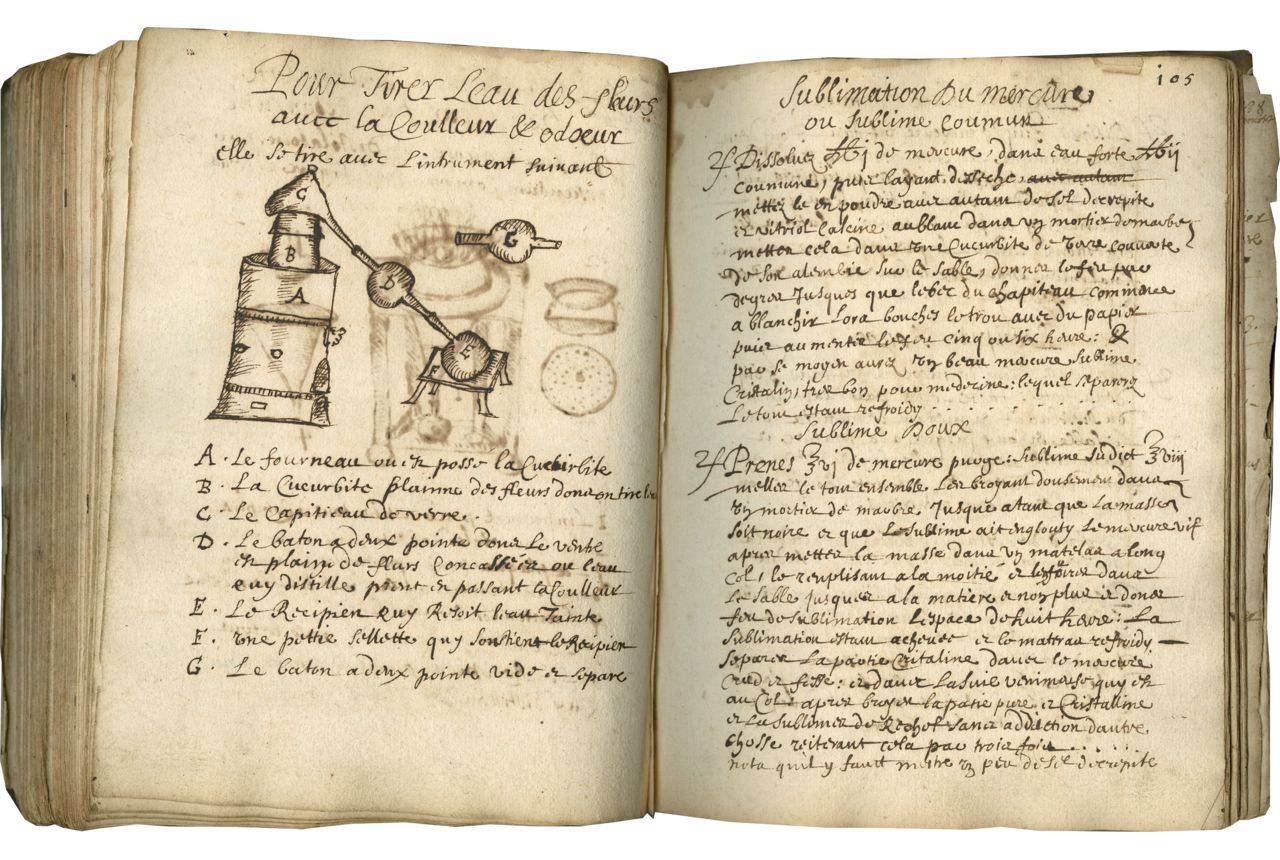 Pour Tirer Leau des fleurs
avec la Coulleur & odoeur
elle se tire avec Lintrument suivant
C
B
A
D
E
F
G
A. Le fourneau ou est posse la Cucurbite
B. La Cucurbite plainne des fleurs dont on tire leau
C. Le Capitieau de verre.
D. Le baton a deux pointe donct Le ventre
est plain de fleurs Concassées ou leau
quy distille prent en passant la Coulleur
E. Le Recipien quy Resoit leau Tainte
F. une pettie sellette quy soustient le Recipien
G. Le baton a deux pointe vide et separe
105
Sublimation Du mercure
ou sublime Coumun
Dissolvez de mercure, dans eau forte
Coumune, puis layant desseche avec autant
mettez le en poudre avec autant de sel decrepite
et vitriol calciné au blanc dans un mortier de marbre
mettez cela dans une Cucurbite de verre couverte
de son alembic sur le sable, donnez le feu par
degrez Jusques que lebec du Chapiteau commence
a blanchir Lors bouches le trou avec du papier
puis aumentez le feu cinq ou six heure: &
par se moyen aurez un beau mercure sublime
Cristalin, tres bon pour medecine: lequel separerez
Le tout estant refroidy
Sublime Doux
Prenes de mercure purgé: sublime sudict
mesler le tout ensemble Les broyant dousement dans
un mortier de marbre Jusque a tant que la masse
soit noire et que Le sublime ait englouty Le mercure vif
apres mettez la masse dans un matelas a long
Col, le remplisant a la moitié et dans
Le sable jusques a la matiere et non plus et donez
feu de sublimation Lespace de huit heure: La
sublimation estant achevee et le matras refroidy
separez La partie Cristaline davec le mercure
crud et: et davec La suie venimeuse quy est
au Col: apres broyer la patie pure et Cristalline
et La sublimer de Rechef sans addiction dautre
chosse reiterant cela par trois fois
nota quil y fault mettre un peu de sel decrepite